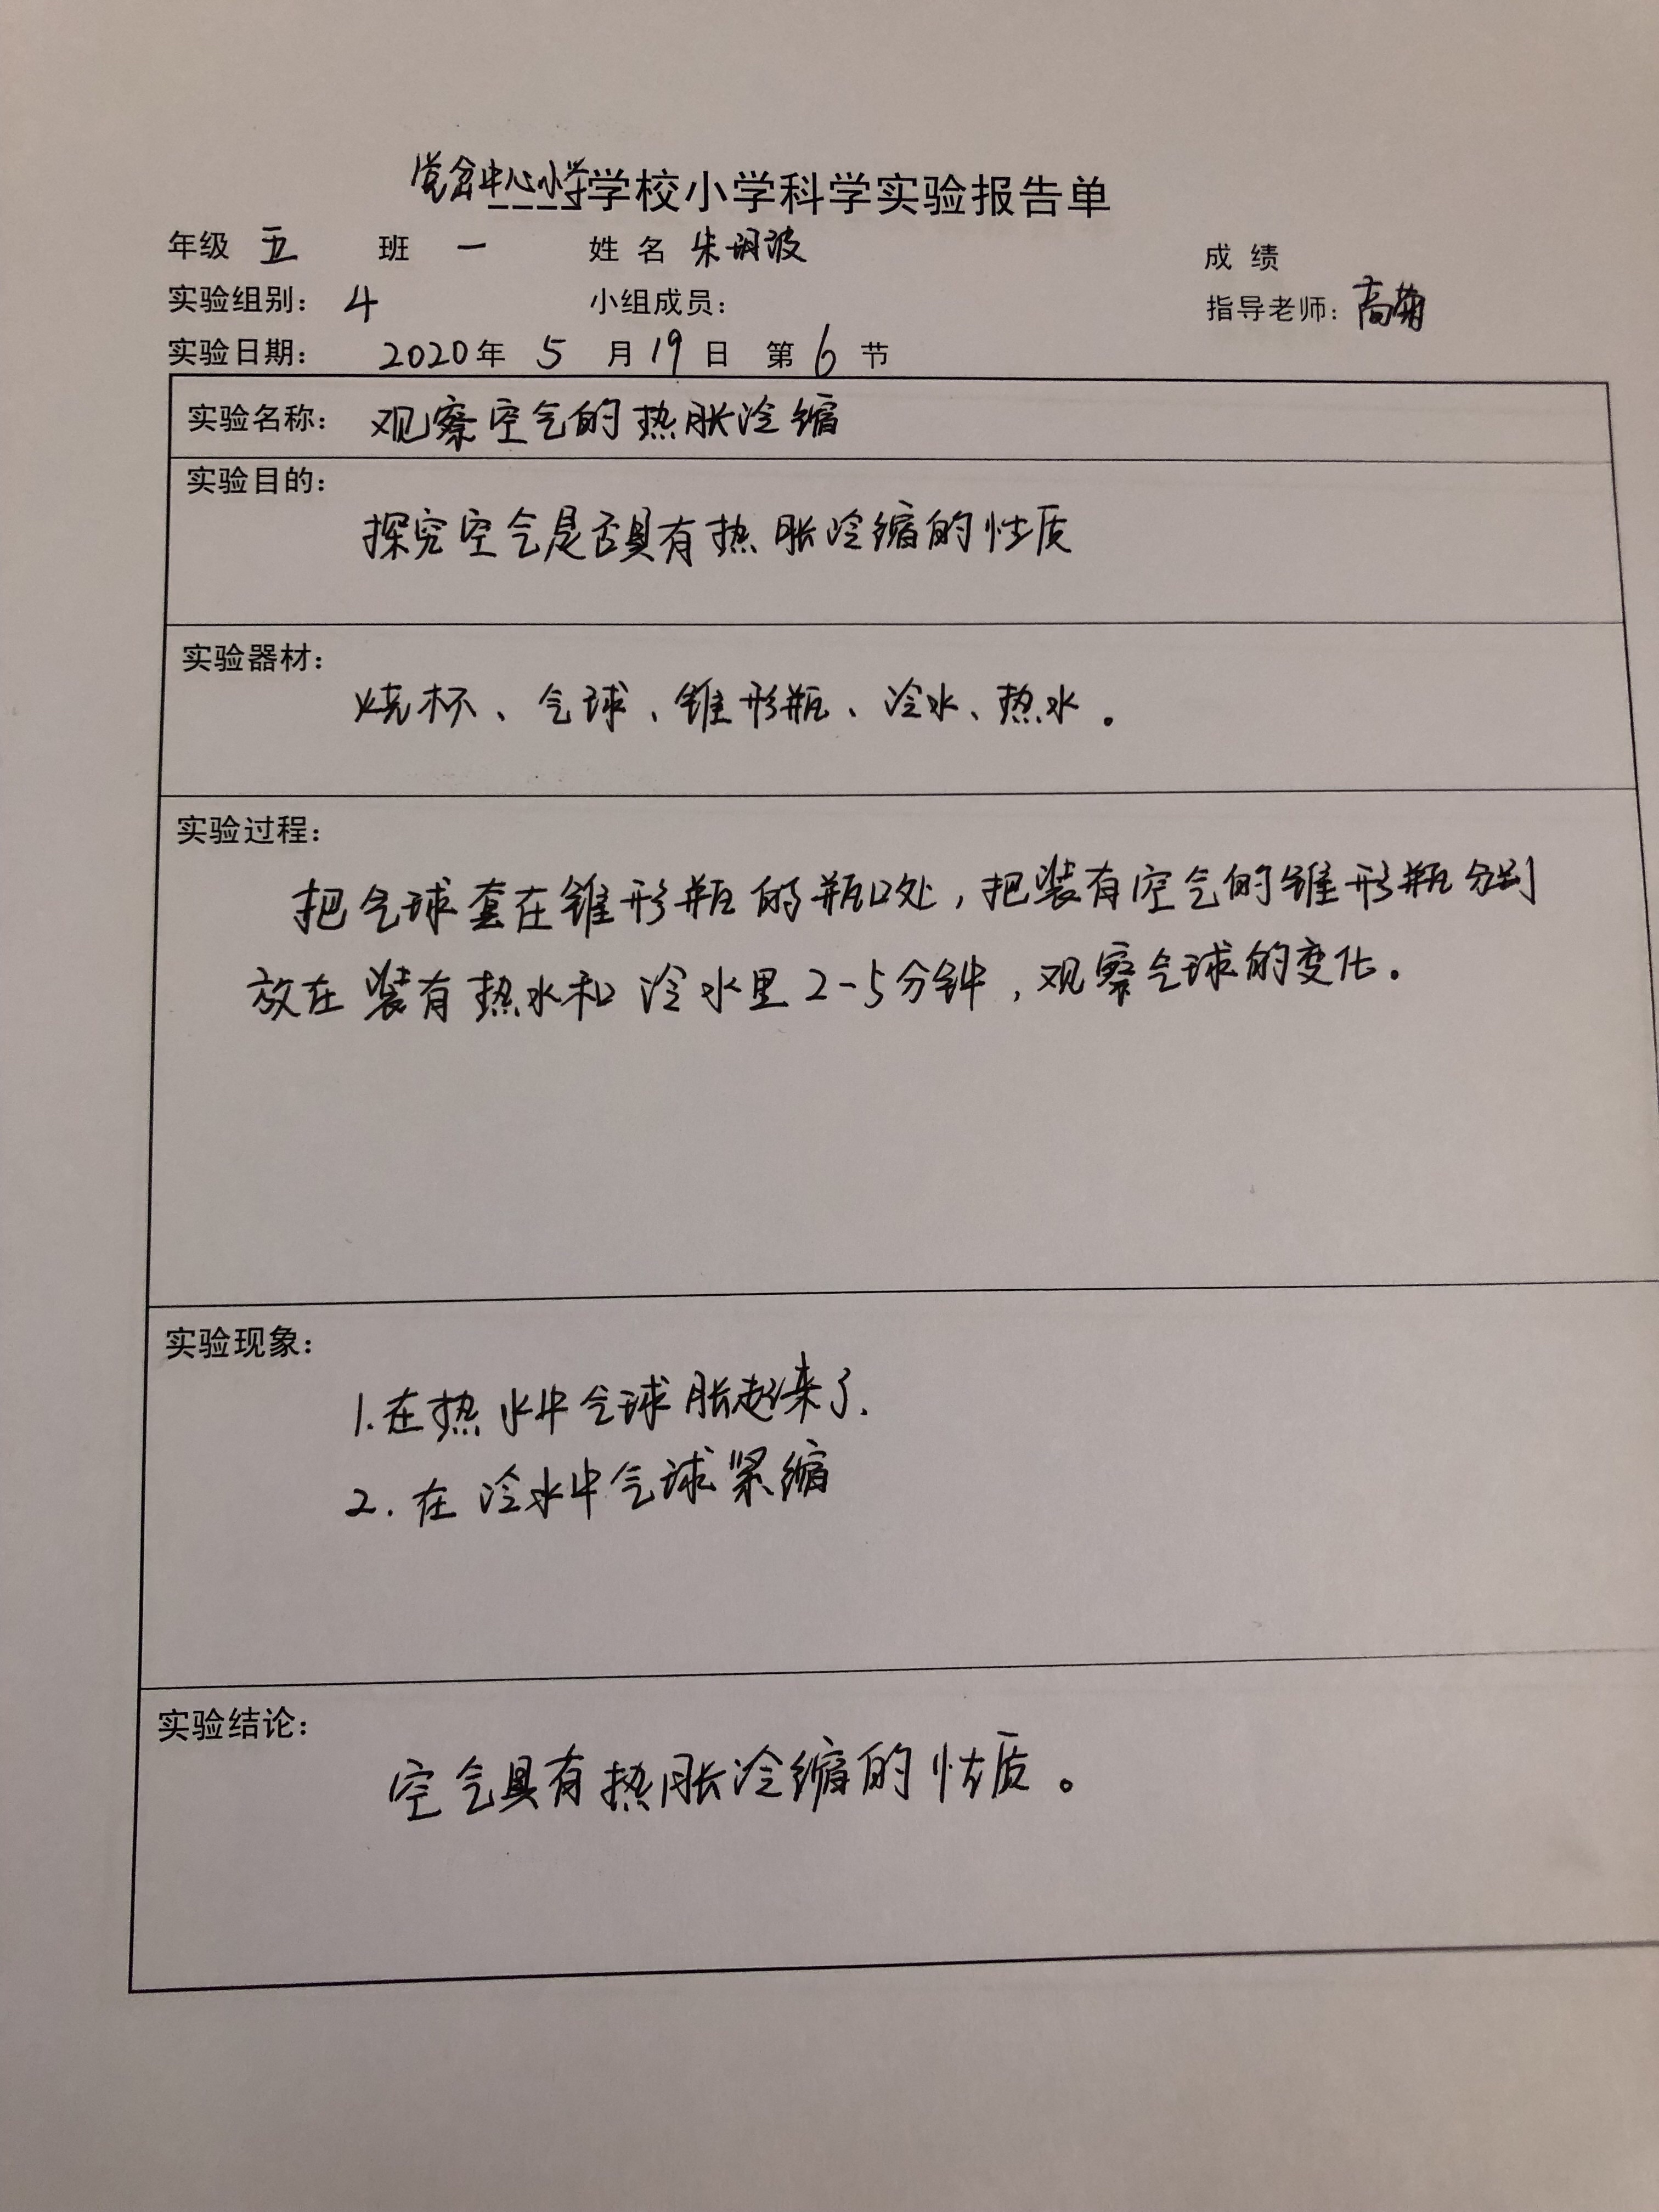 中心小学学校小学科学实验报告单
年级 五 班 一 姓名 朱 波 成绩
实验组别: 4 小组成员: 指导老师: 高
实验日期: 2020年 5 月 19 日 第 6 节
实验名称: 观察空气的热胀冷缩
实验目的:
探究空气是否具有热胀冷缩的性质
实验器材:
烧杯、气球、锥形瓶、冷水、热水。
实验过程:
把气球套在锥形瓶的瓶口处,把装有空气的锥形瓶分别
放在装有热水和冷水里2-5分钟,观察气球的变化。
实验现象:
1.在热水中气球胀起来了.
2.在冷水中气球紧缩
实验结论:
空气具有热胀冷缩的性质。